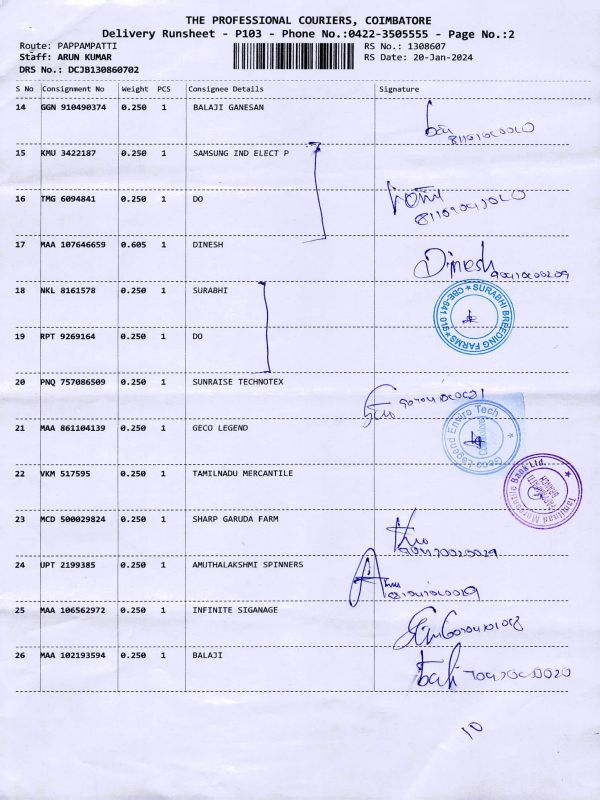 THE PROFESSIONAL COURIERS, COIMBATORE
Delivery Runsheet - P103 - Phone No.:0422-3505555 - Page No.:2
Route: PAPPAMPATTI RS No.: 1308607
Staff: ARUN KUMAR RS Date: 20-Jan-2024
DRS No.: DCJB130860702
S No Consignment No Weight PCS Consignee Details Signature
14 GGN 910490374 0.250 1 BALAJI GANESAN
15 KMU 3422187 0.250 1 SAMSUNG IND ELECT P
16 TMG 6094841 0.250 1 DO
17 MAA 107646659 0.605 1 DINESH
Dinesh
18 NKL 8161578 0.250 1 SURABHI
SURABHI BREEDING FARMS
19 RPT 9269164 0.250 1 DO
20 PNQ 757086509 0.250 1 SUNRAISE TECHNOTEX
21 MAA 861104139 0.250 1 GECO LEGEND
Geco Legend Enviro Tech
22 VKM 517595 0.250 1 TAMILNADU MERCANTILE
Tamilnad Mercantile Bank Ltd.
23 MCD 500029824 0.250 1 SHARP GARUDA FARM
24 UPT 2199385 0.250 1 AMUTHALAKSHMI SPINNERS
25 MAA 106562972 0.250 1 INFINITE SIGANAGE
26 MAA 102193594 0.250 1 BALAJI
10